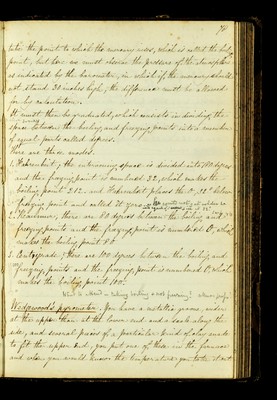 75
tates the point to which the mercury rises, which is called the boiling
point, but here we must observe the pressure of the atmosphere
as indicated by the barometer, in which if the mercury should
not stand 30 inches high, the difference must be allowed
for by calculation.
It must then be graduated, which consists in dividing the
space between the boiling and freezing points into a number
of equal parts called degrees.
There are three modes.
1. Fahrenheit; the intervening space is divided into 180 degrees
and the freezing point is numbered 32, which makes the
boiling point 212. and Fahrenheit places the 0, 32° below
freezing point and called it zero
2. Reaumur, there are 80 degrees between the boiling and
freezing points and the freezing point is numbered 0, which
makes the boiling point 80.
3. Centigrade; there are 100 degrees between the boiling and
freezing points, and the freezing point is numbered 0, which
makes the boiling point 100°.
Wedgwood's pyrometer. You have a metallic groove, wider
at the upper than at the lower end and a scale along the
side, and several pieces of a particular kind of clay made
to fit the upper end, you put one of these in the furnace
and when you would know the temperature you take it out